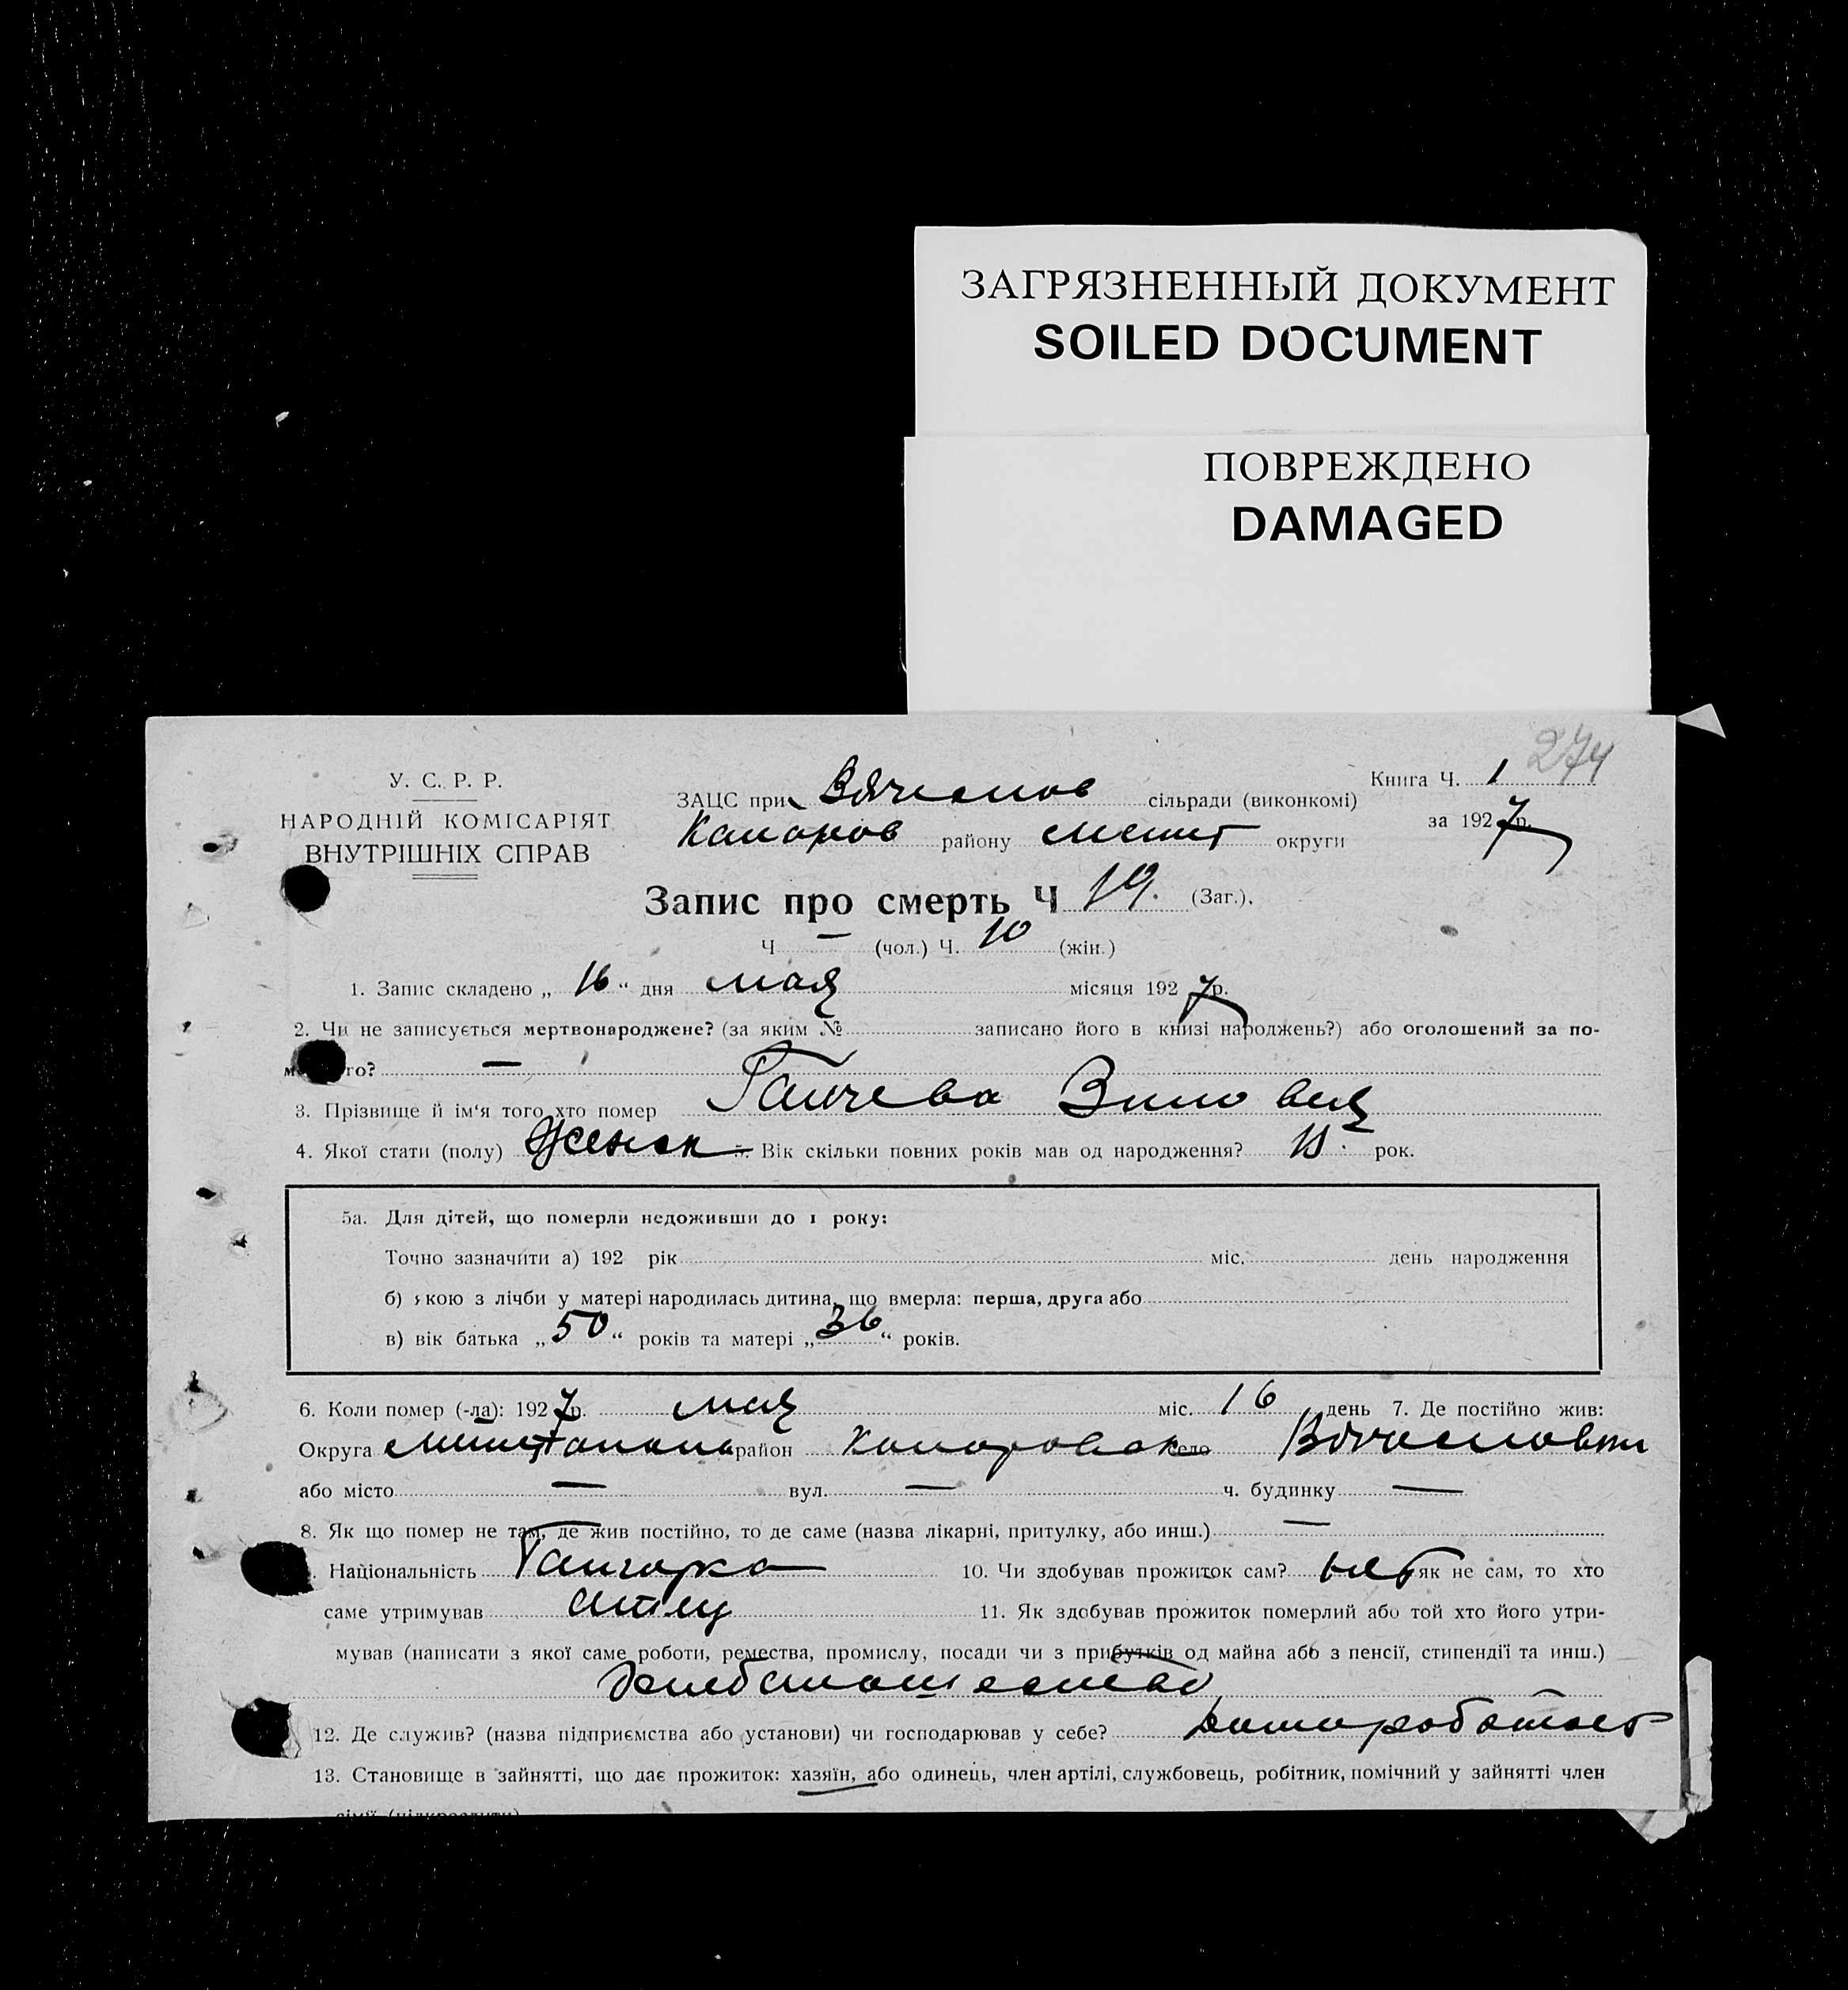 ЗАГРЯЗНЕННЫЙ ДОКУМЕНТ
SOILED DOCUMENT
ПОВРЕЖДЕНО
DAMAGED
274
У. С. Р. Р.
НАРОДНІЙ КОМІСАРІЯТ
ВНУТРІШНІХ СПРАВ
Книга Ч. 1
за 1927 р.
ЗАЦС при сільради (виконкомі)
району округи
Запис про смерть Ч 19. (Заг.).
Ч — (чол.) Ч. 10 (жін.)
1. Запис складено „ 16 “ дня мая місяця 1927 р.
2. Чи не записується мертвонароджене? (за яким № записано його в книзі народжень?) або оголошений за по-
го? —
3. Прізвище й ім'я того хто помер
4. Якої стати (полу) женск 5. Вік скільки повних років мав од народження? рок.
5а. Для дітей, що померли недоживши до 1 року:
Точно зазначити а) 192 рік міс. день народження
б) якою з лічби у матері народилась дитина, що вмерла: перша, друга або
в) вік батька „ 50 “ років та матері „ 36 “ років.
6. Коли помер (-ла): 1927 р. мая міс. 16 день 7. Де постійно жив:
Округа район село
або місто — вул. — ч. будинку —
8. Як що помер не там, де жив постійно, то де саме (назва лікарні, притулку, або инш.) —
Національність 10. Чи здобував прожиток сам? нет як не сам, то хто
саме утримував 11. Як здобував прожиток померлий або той хто його утри-
мував (написати з якої саме роботи, ремества, промислу, посади чи з прибутків од майна або з пенсії, стипендії та инш.)
12. Де служив? (назва підприємства або установи) чи господарював у себе?
13. Становище в зайнятті, що дає прожиток: хазяїн, або одинець, член артілі, службовець, робітник, помічний у зайнятті член